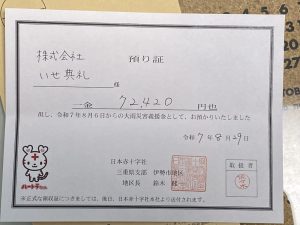 預り証
株式会社
いせ典礼 様
一金 72,420 円也
但し、令和7年8月6日からの大雨災害義援金として、お預かりいたしました
令和 7年 8月 29日
日本赤十字社
三重県支部 伊勢市地区
地区長 鈴木
取扱者
佐々木
ハートラちゃん
※正式な領収証につきましては、後日、日本赤十字社本社より送付されます。